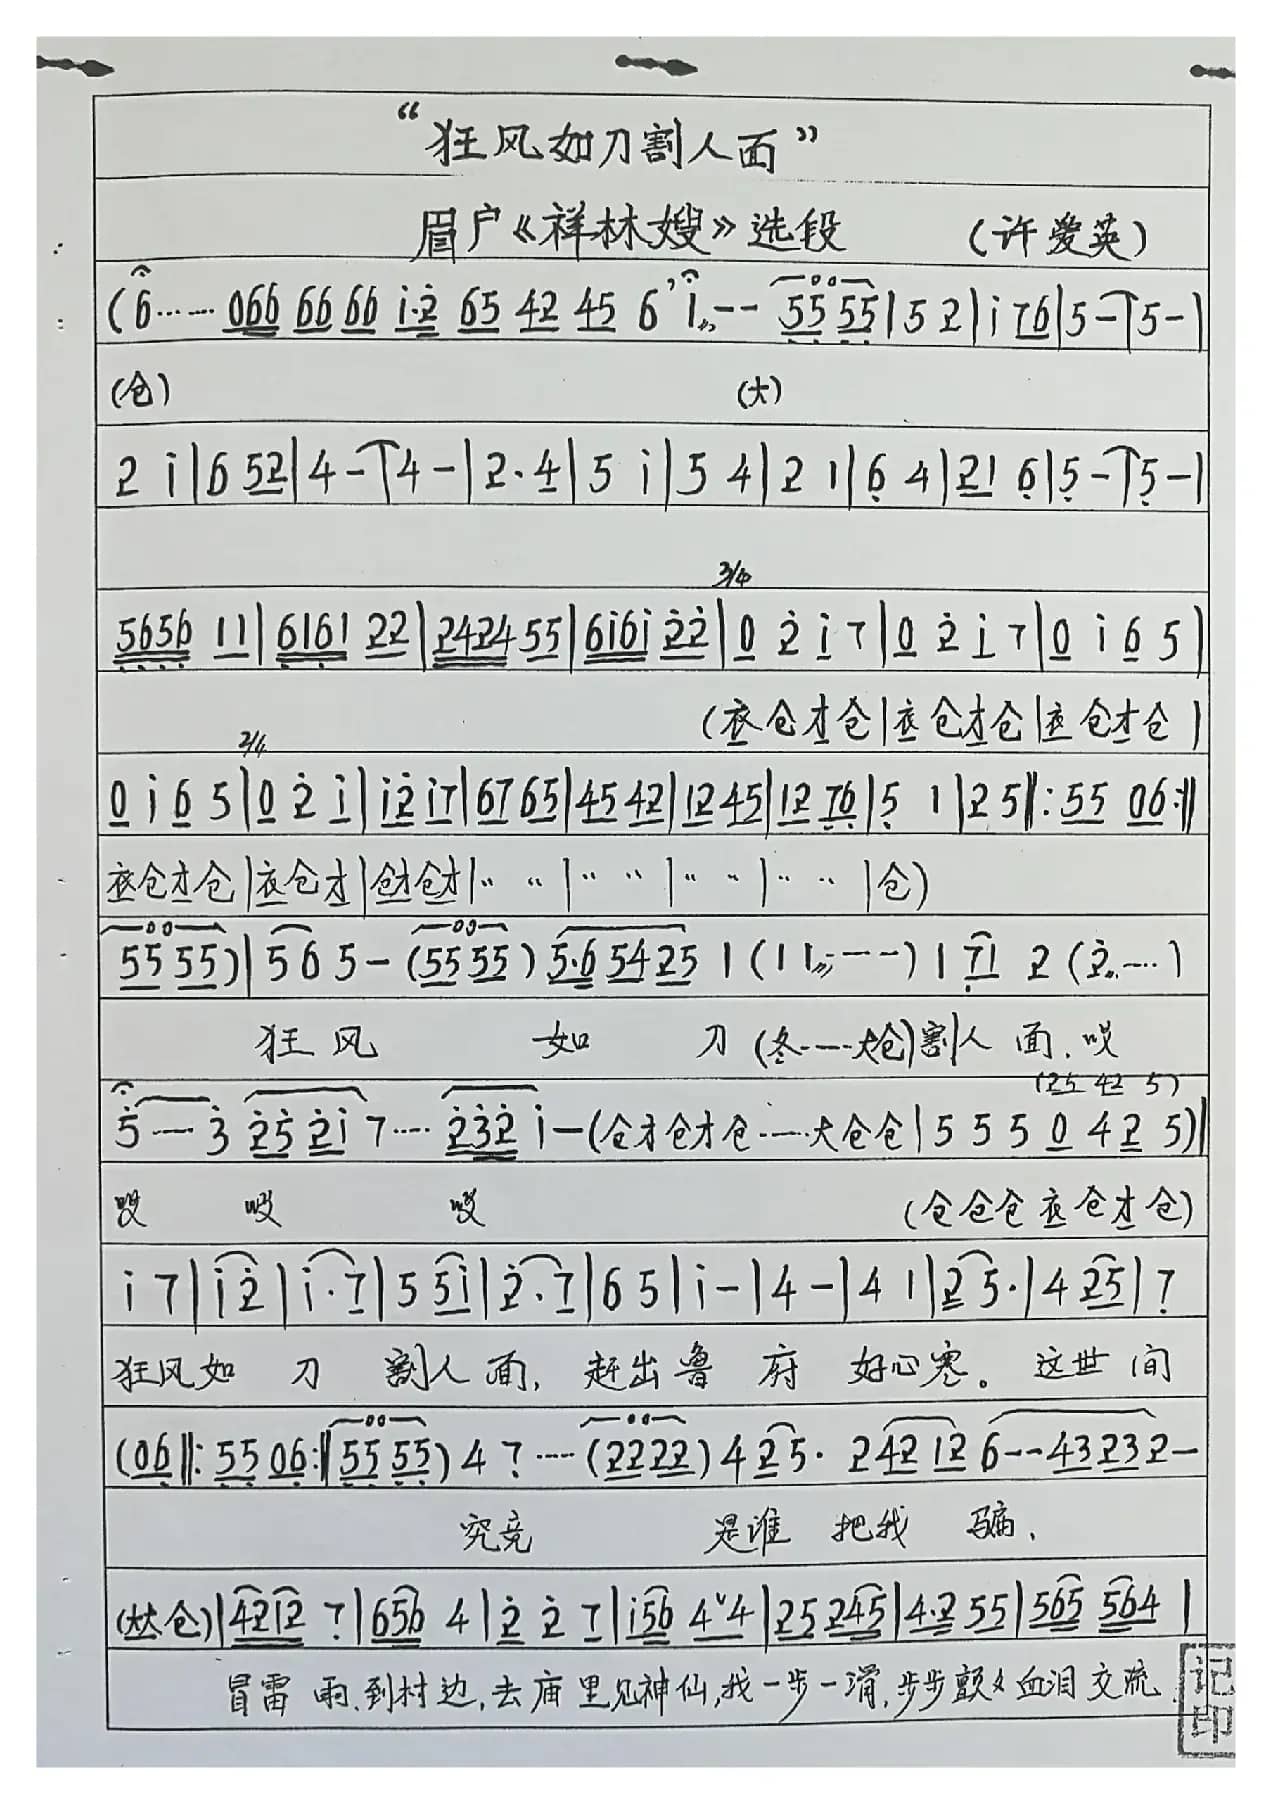 “狂风如刀割人面”
眉户《祥林嫂》选段 (许爱英)
(6······ 066 66 66 i·2 65 42 45 6 ’ i〃-- 55 55 | 5 2 | i 76 | 5 - | 5 - |
(仓) (大)
2 i | 6 52 | 4 - | 4 - | 2·4 | 5 i | 5 4 | 2 1 | 6 4 | 21 6 | 5 - | 5 - |
3/4
5656 11 | 6161 22 | 2424 55 | 6i6i 22 | 0 2 i 7 | 0 2 i 7 | 0 i 6 5 |
(衣仓才仓 | 衣仓才仓 | 衣仓才仓 |
2/4
0 i 6 5 | 0 2 i | i2 i7 | 67 65 | 45 42 | 12 45 | 12 76 | 5 1 | 2 5 ‖: 55 06 :‖
衣仓才仓 | 衣仓才 | 仓才仓才 | 〃 〃 | 〃 〃 | 〃 〃 | 〃 〃 | 仓)
55 55) | 5 6 5 - (55 55) 5·6 54 25 1 (1 1〃---) 1 71 2 (2····)
狂风 如 刀 (冬····大仓) 割人 面, 哎
(25 42 5)
5---3 25 2i 7···· 232 i - (仓才仓才仓·····大仓仓 | 5 5 5 0 4 2 5) |
哎 哎 哎 (仓仓仓衣仓才仓)
i 7 | i 2 | i·7 | 5 5i | 2·7 | 6 5 | i - | 4 - | 4 1 | 2 5· | 4 25 | 7
狂风如 刀 割人面, 赶出鲁 府 好心寒。 这世 间
(06 ‖: 55 06 :‖ 55 55) 4 7 ···· (2222) 4 25· 2 42 12 6--43232-
究竟 是谁 把我 骗,
(仓) | 4212 7 | 656 4 | 2 2 7 | i56 4ˇ4 | 25 245 | 4·2 55 | 565 564 |
冒雷雨,到村边,去庙里见神仙,我一步一滑,步步颤々血泪交流,
记
印